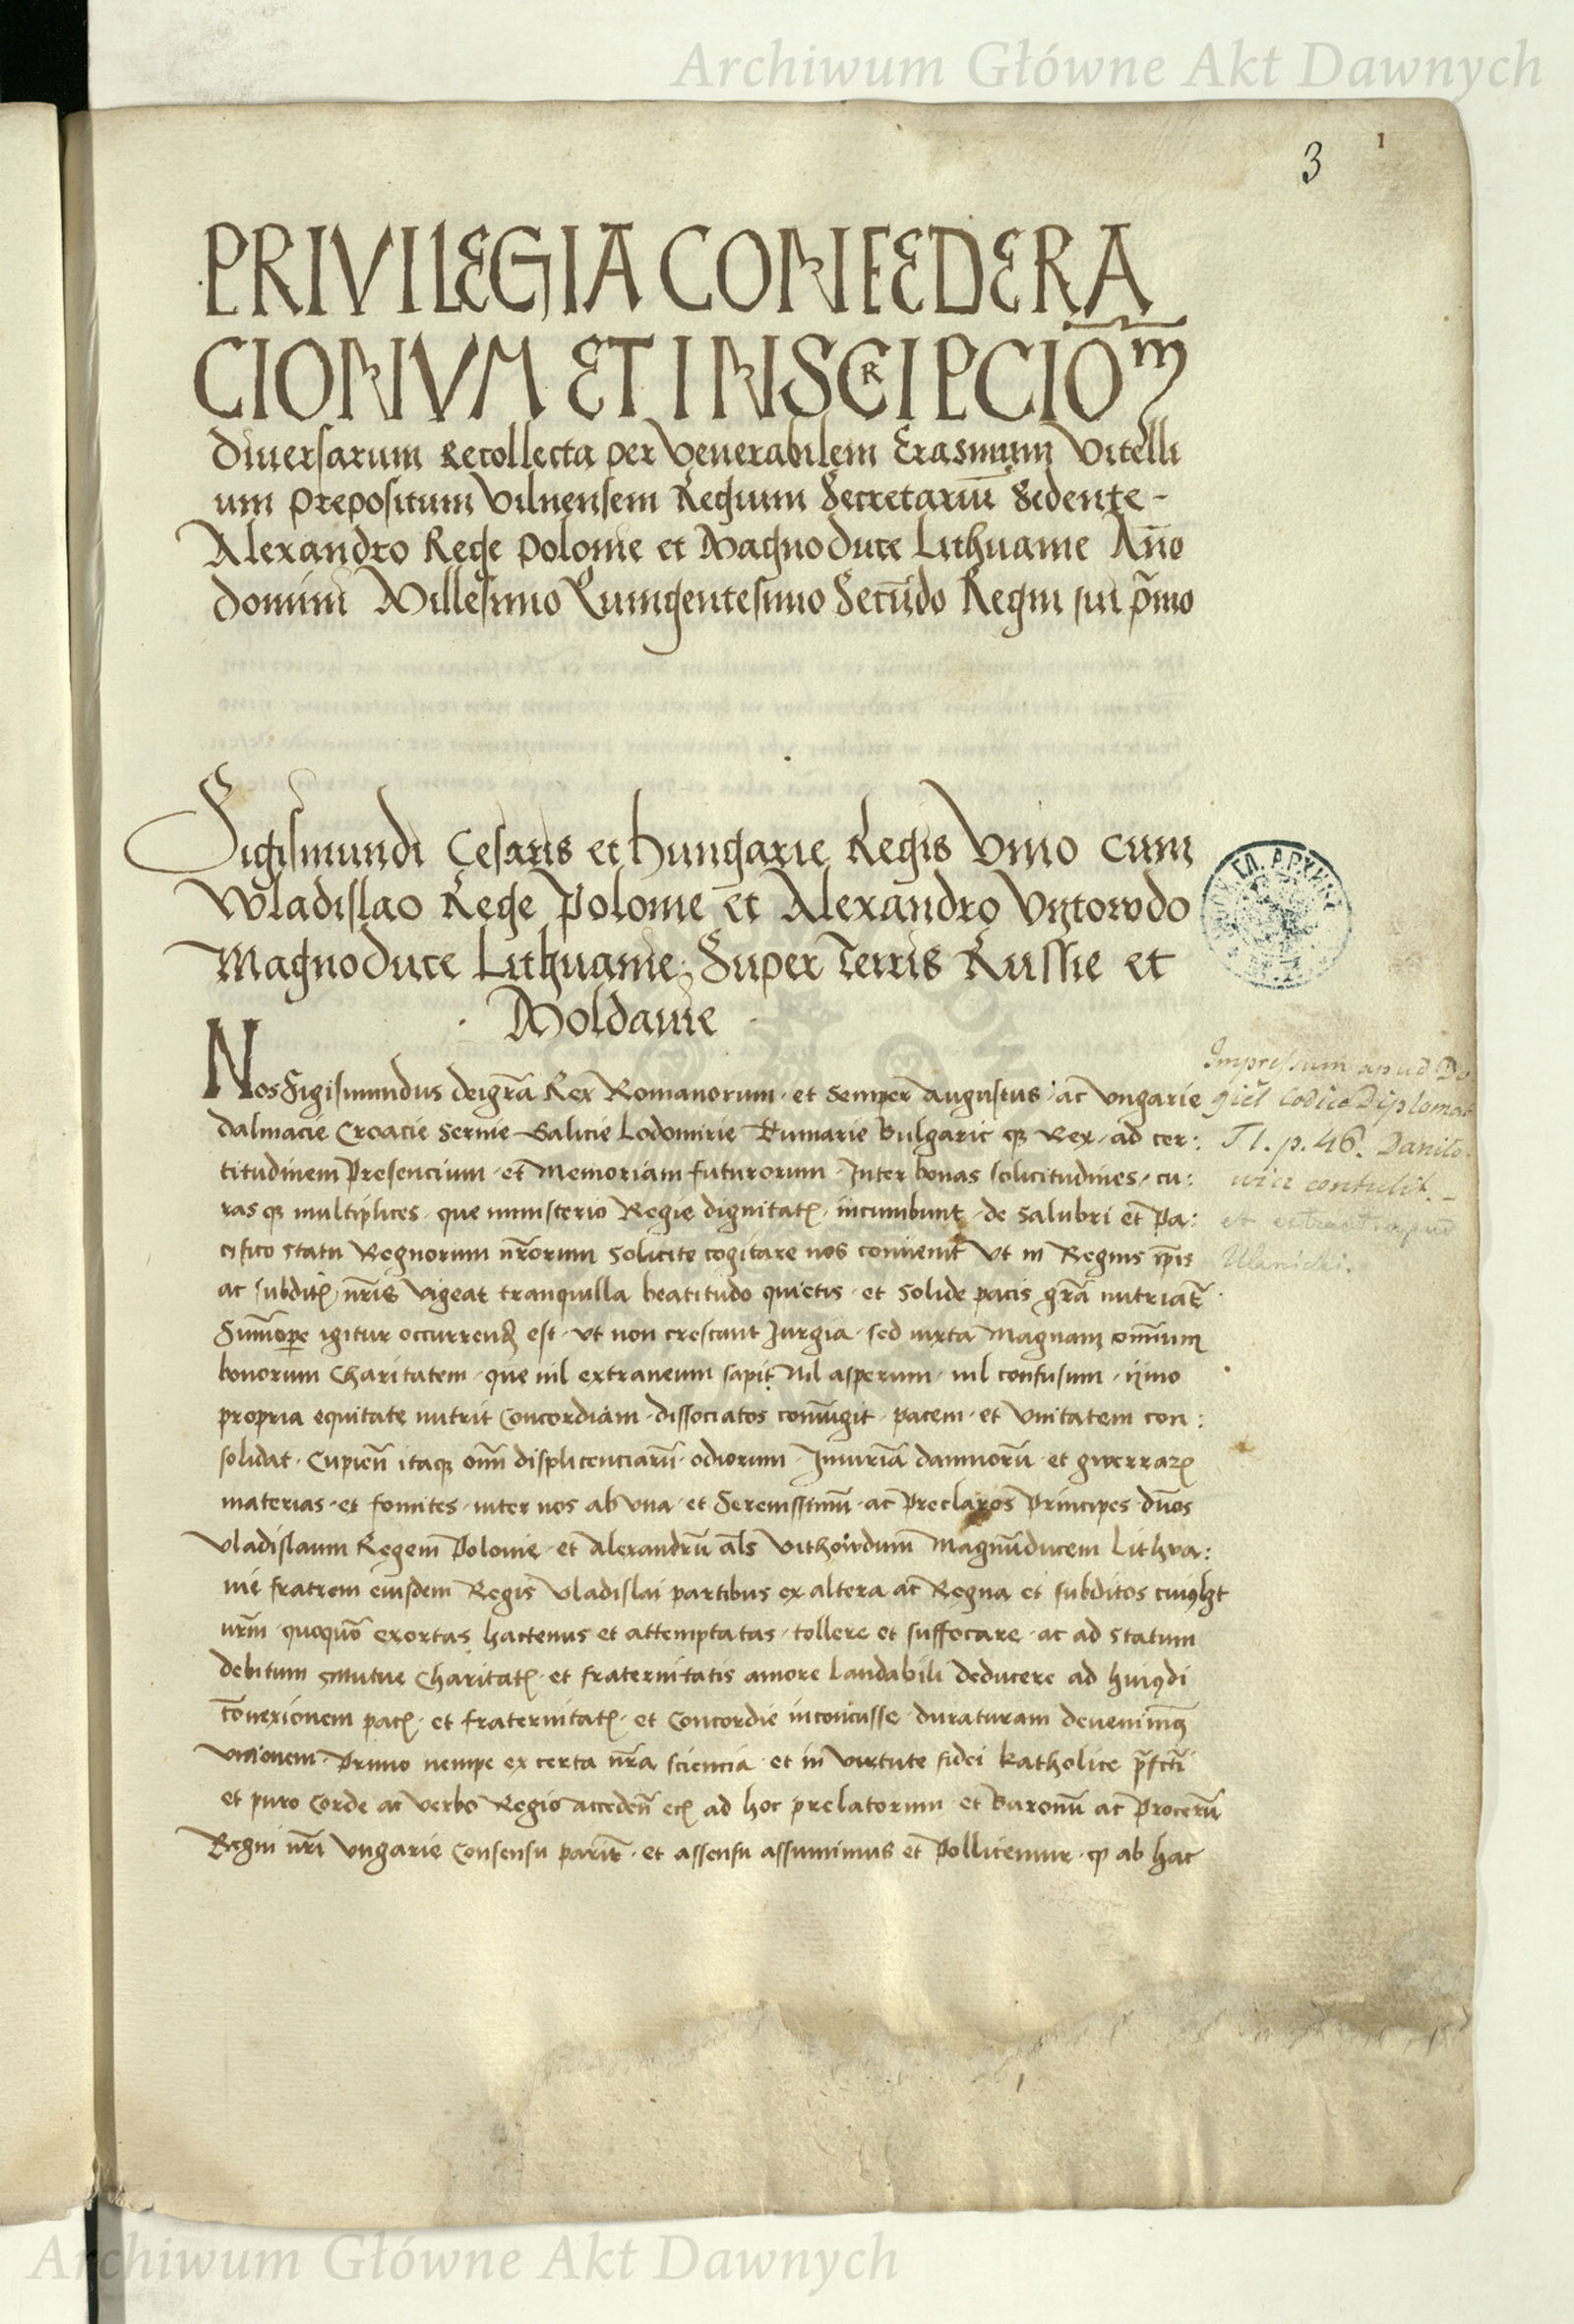 Archiwum Główne Akt Dawnych
3 1
PRIVILEGIA CONFEDERA
CIONVM ET INSCRIPCIOm̄
diuersarum recollecta per Venerabilem Erasmum Vitelli
um prepositum Vilnensem Regium Secretariū Sedente -
Alexandro Rege polonie et Magnoduce Lithuanie Año
domini Millesimo Quingentesimo Secūdo Regni sui p̄mo
Sigismundi Cesaris et hungarie Regis Vnio cum
Wladislao Rege Polonie et Alexandro Vytowdo
Magnoduce Lithuanie, Super Terris Russie et
· Moldauie ·
Nos Sigismundus dei grā Rex Romanorum · et Semper Augustus · ac Vngarie
Dalmacie Croacie Seruie Galicie Lodomirie Kumarie Bulgarie qȝ Rex, ad cer:
titudinem Presencium · et Memoriam futurorum · Inter bonas solicitudines, cu:
ras qȝ multiplices · que ministerio Regie dignitatꝭ · incumbunt · de Salubri et Pa:
cifico Statu Regnorum nr̄orum Solicite cogitare nos conuenit Vt in Regnis ip̄is
ac subditꝭ nr̄is vigeat tranquilla beatitudo quietis · et Solide pacis grā nutriat̄ ·
Sum̄opere igitur occurrendȝ est · Vt non crescant Jurgia · sed iuxta Magnam om̄ium
bonorum Charitatem · que nil extraneum sapit Nil asperum · nil confusum · ijmo
propria equitate nutrit Concordiam · dissociatos coniūgit · pacem · et Vnitatem con:
solidat · Cupien̄ itaqȝ om̄i displicenciarū · odiorum · Iniuriā damnorū · et gwerrarꝝ
materias · et fomites · inter nos ab vna · et Serenissimū · ac Preclaros Principes · dn̄os
Vladislaum Regem Polonie · et Alexandrū al̄s Vithowdum Magnūducem Lithva:
nie fratrem eiusdem Regis Vladislai partibus ex altera ac Regna et subditos cuiꝰlꝫt
nr̄m · quoquō exortas hactenus et attemptatas · tollere et suffocare · ac ad Statum
debitum mutue Charitatꝭ · et fraternitatis amore laudabili deducere ad huiꝰdi
Con̄exionem pacꝭ · et fraternitatꝭ · et Concordie inconcusse · duraturam deuenimꝰ
vnionem · Primo nempe ex certa nr̄a sciencia · et in virtute fidei katholice
et puro Corde ac verbo Regio acceden̄ ad hoc prelatorum · et Baronū ac Procerū
Regni nr̄i Vngarie Consensu parit̄ · et assensu assumimus et Pollicemur · ꝙ ab hac
Impressum apud Do
giel Codice Diplomat
T 1. p. 46. Danilo
wicz contulit. -
et extract apud
Ulanicki.
Archiwum Główne Akt Dawnych